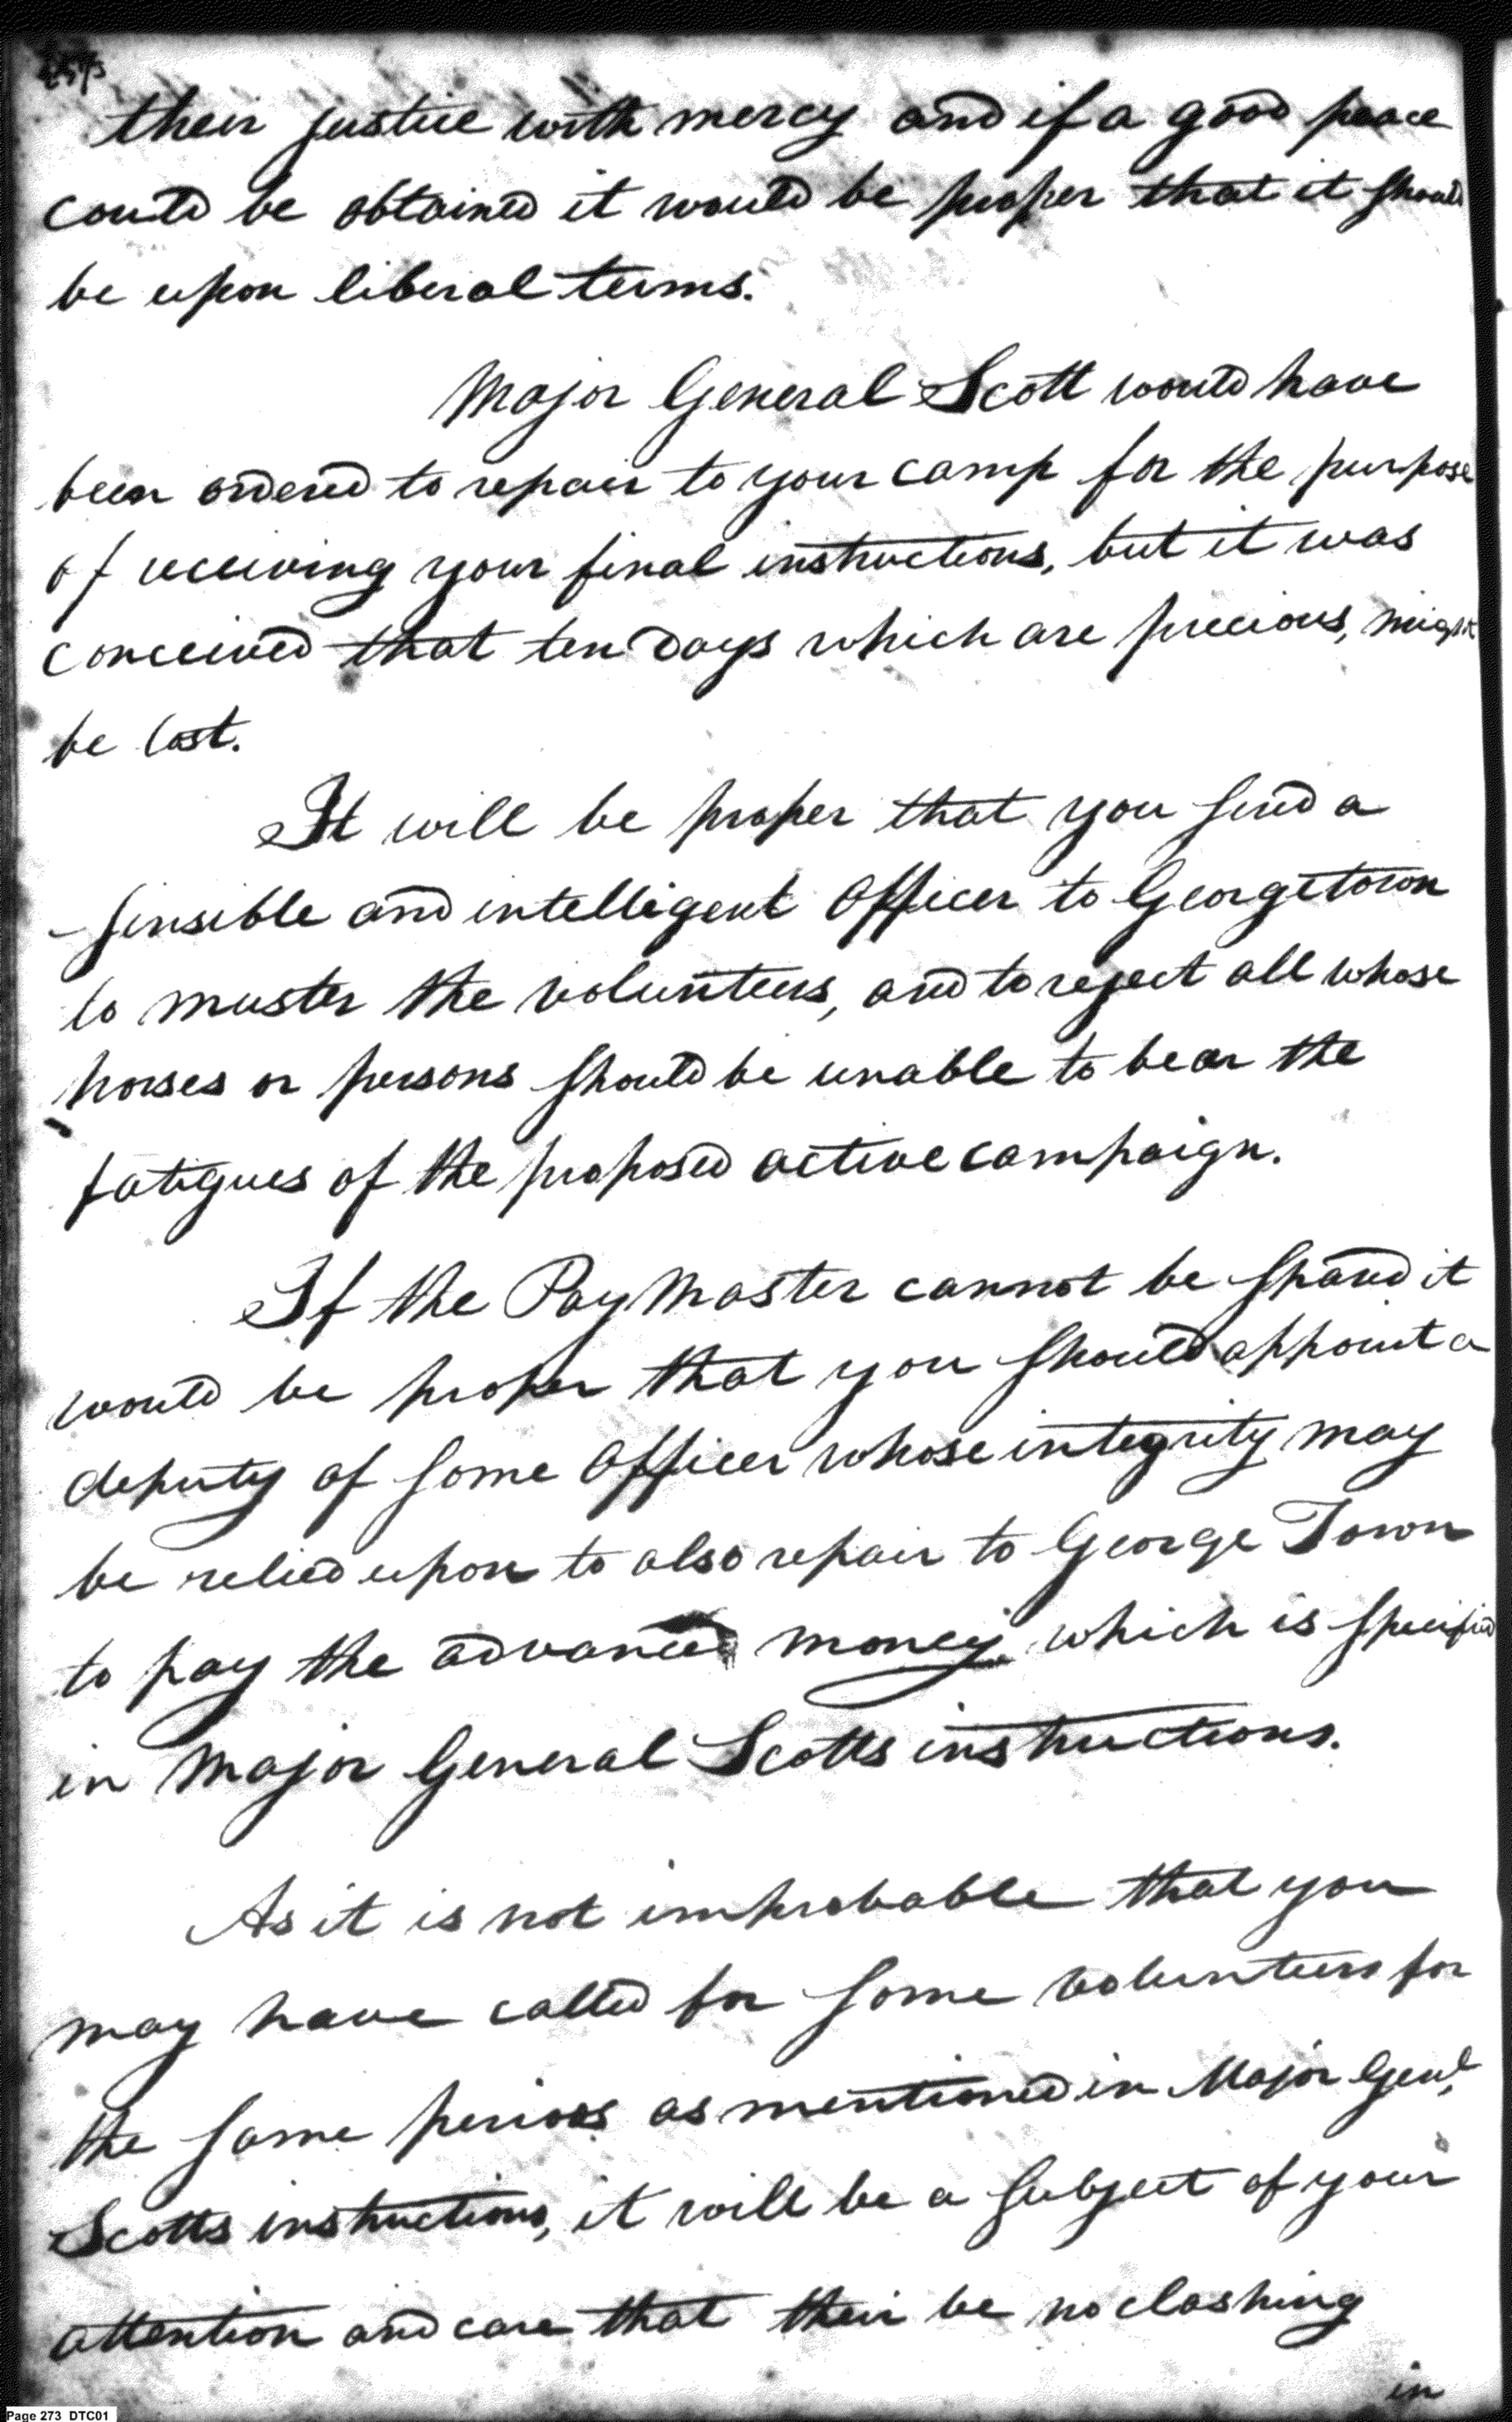 their justice with mercy and if a good peace
could be obtained it would be proper that it should
be upon liberal terms.
Major General Scott would have
been ordered to repair to your camp for the purpose
of receiving your final instructions, but it was
conceived that ten days which are precious, might
be lost.
It will be proper that you send a
sensible and intelligent Officer to Georgetown
to muster the volunteers, and to reject all whose
horses or persons should be unable to bear the
fatigues of the proposed active campaign.
If the Pay Master cannot be spared it
would be proper that you should appoint a
deputy of some Officer whose integrity may
be relied upon to also repair to George Town
to pay the advanced money which is specified
in Major General Scotts instructions.
As it is not improbable that you
may have called for some volunteers for
the same periods as mentioned in Major Genl.
Scotts instructions, it will be a subject of your
attention and care that their be no clashing
in
Page 273 DTC01